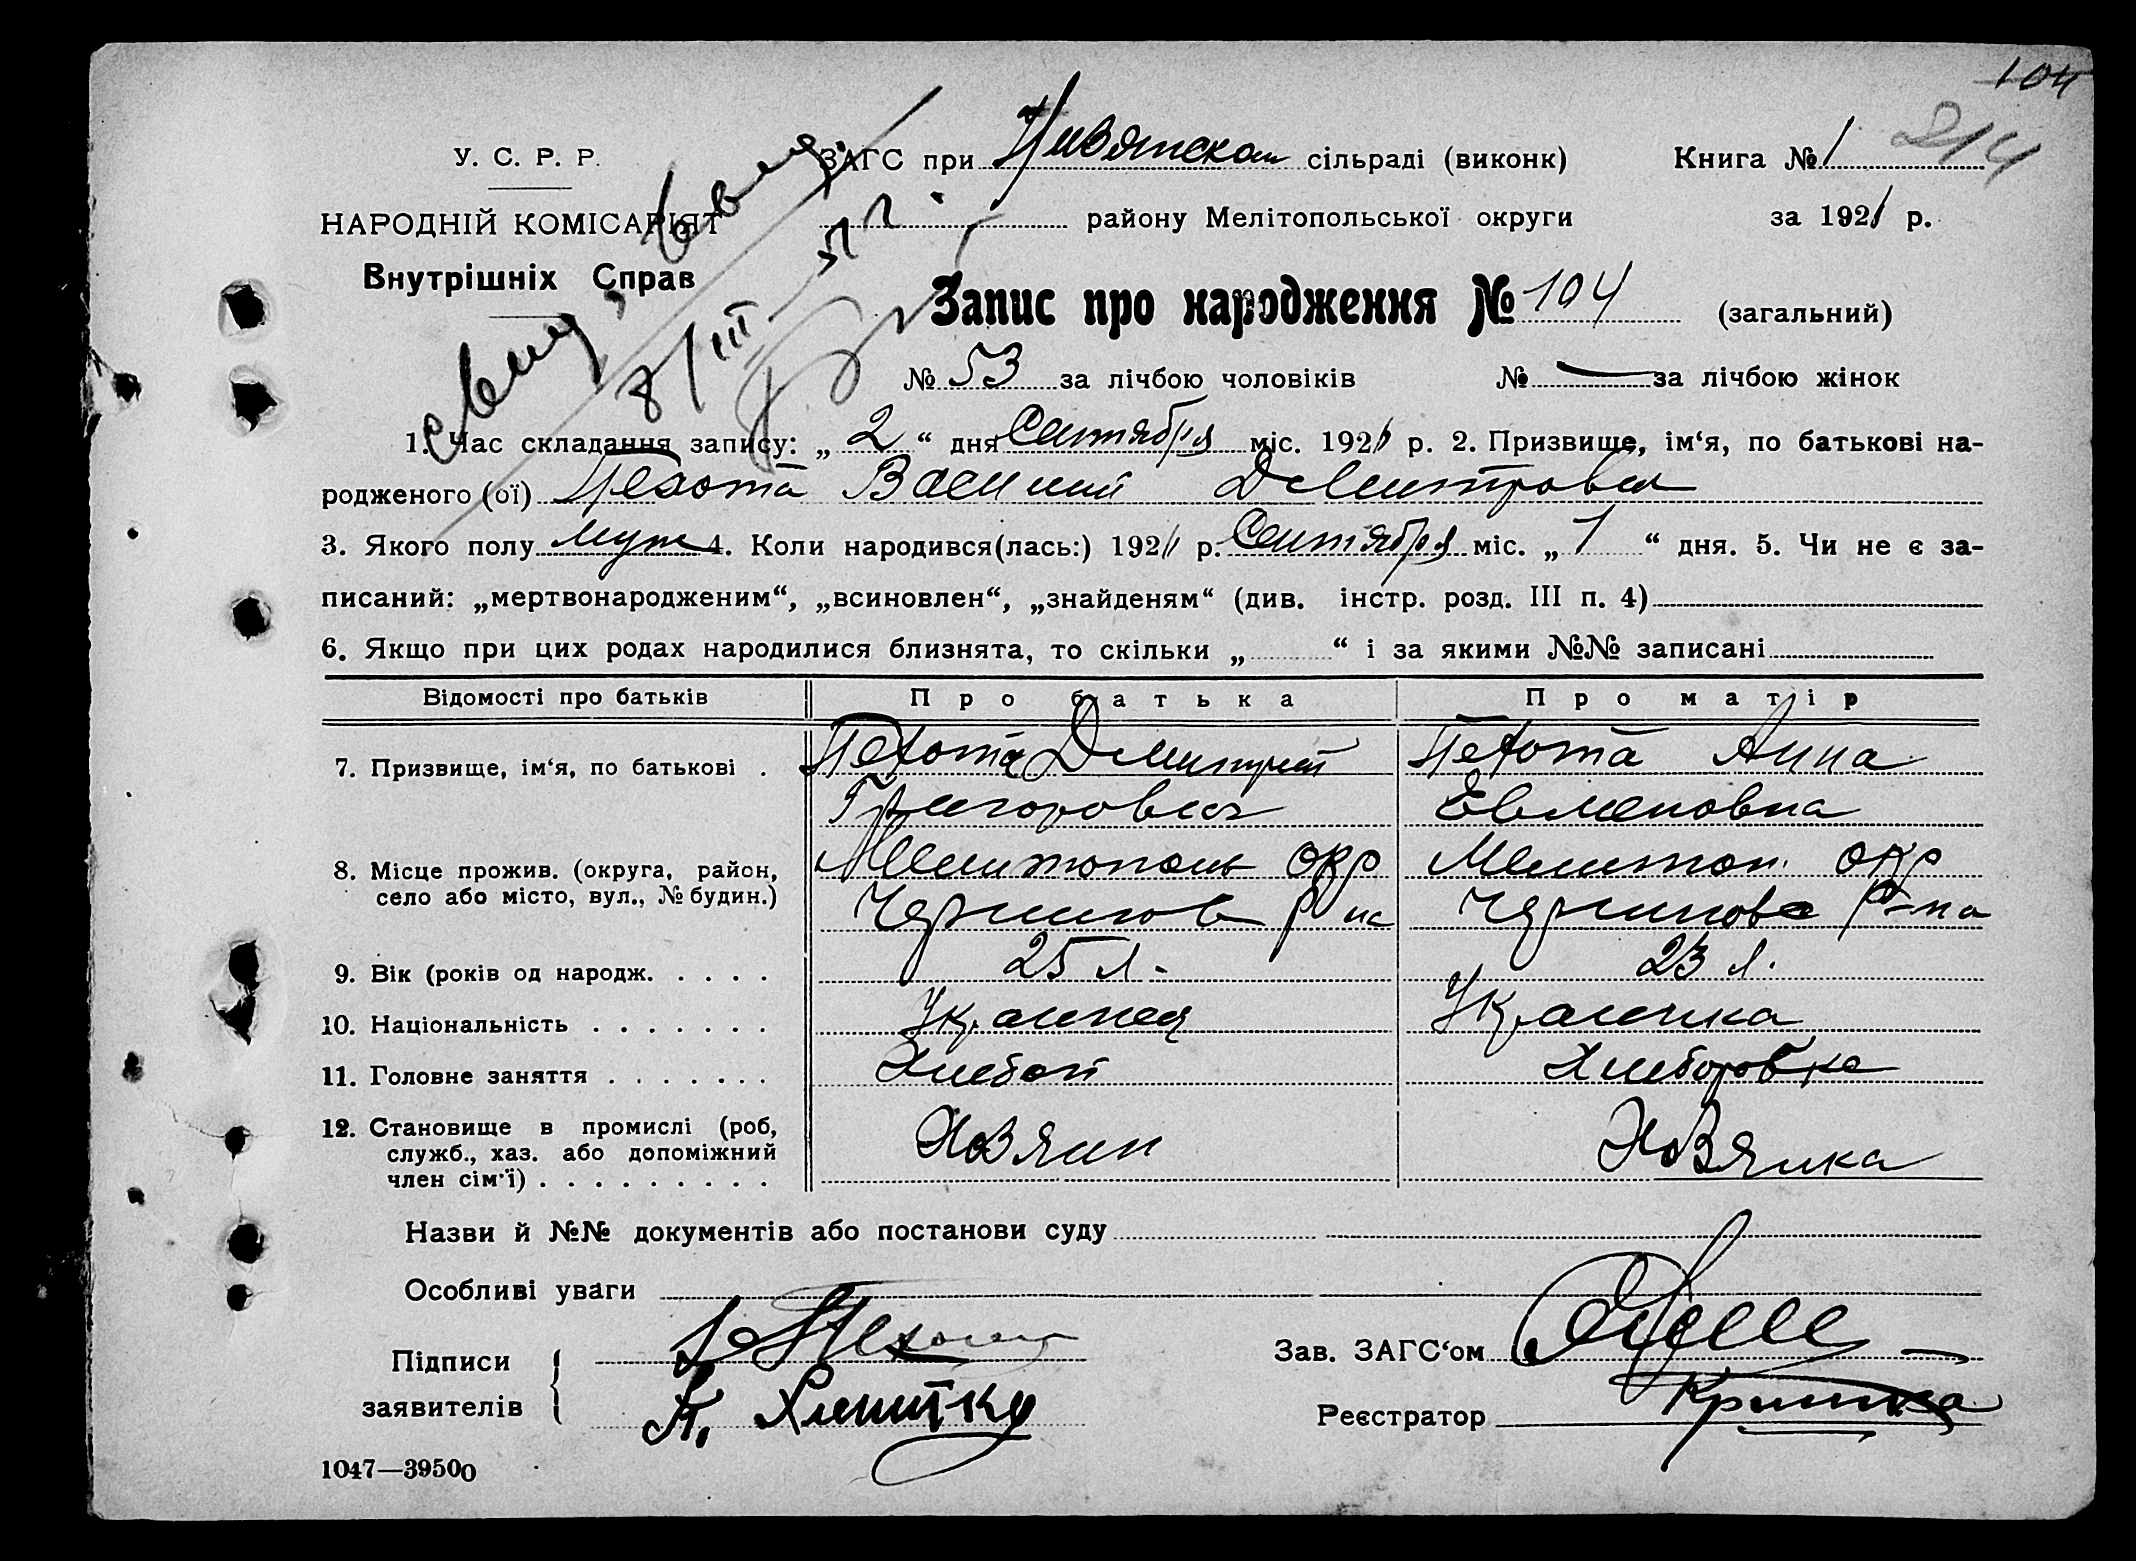 104
У. С. Р. Р. ЗАГС при сільраді (виконк) Книга № 1 214
НАРОДНІЙ КОМІСАРІЯТ району Мелітопольської округи за 192 р.
Внутрішніх Справ
8/III
Запис про народження № 104 (загальний)
№ 53 за лічбою чоловіків № — за лічбою жінок
1. Час складання запису: „ 2 “ дня Сентября міс. 192 р. 2. Призвище, ім‘я, по батькові на-
родженого (ої) Пехота Василий Дмитрович
3. Якого полу муж 4. Коли народився(лась:) 192 р. Сентября міс. „ 1 “ дня. 5. Чи не є за-
писаний: „мертвонародженим“, „всиновлен“, „знайденям“ (див. інстр. розд. III п. 4)
6. Якщо при цих родах народилися близнята, то скільки „ “ і за якими №№ записані
Відомості про батьків Про батька Про матір
7. Призвище, ім‘я, по батькові . Пехота Дмитрий Пехота Анна
Григорович Евменовна
8. Місце прожив. (округа, район, Мелитополь окр Мелитоп. окр
село або місто, вул., № будин.) Чернигов р на Чернигов р-на
9. Вік (років од народж. . . . . 25 л. 23 л.
10. Національність . . . . . . . Украинец Украинка
11. Головне заняття . . . . . . . Хлебороб Хлеборобка
12. Становище в промислі (роб, Хозяин Хозяйка
служб., хаз. або допоміжний
член сім‘ї) . . . . . . . . .
Назви й №№ документів або постанови суду
Особливі уваги
Підписи Пехота Зав. ЗАГС‘ом
заявителів Реєстратор
1047—39500